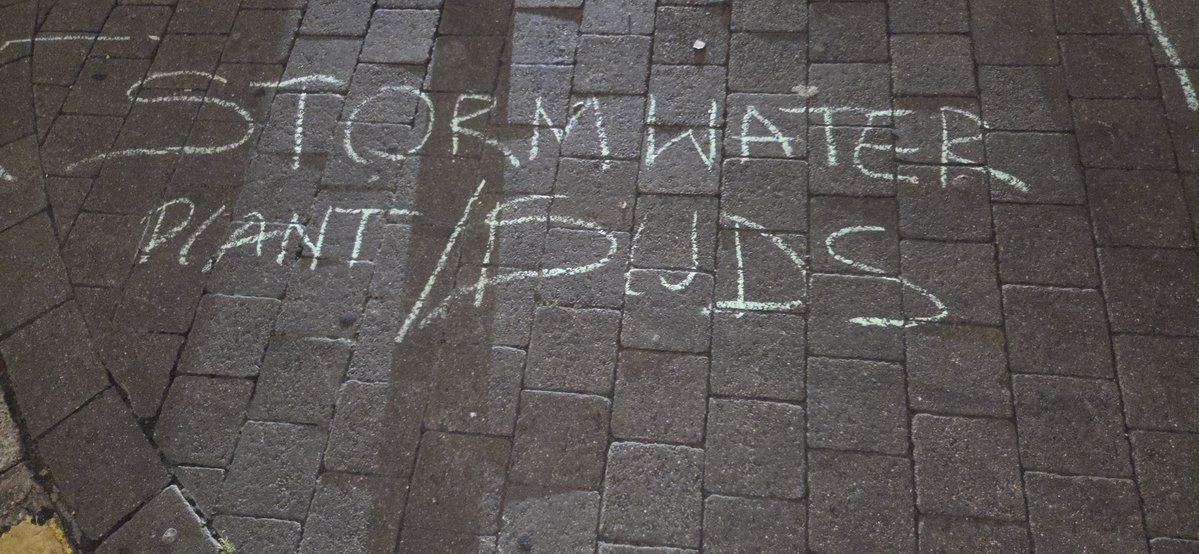 STORM WATER
PLANT/PUDS